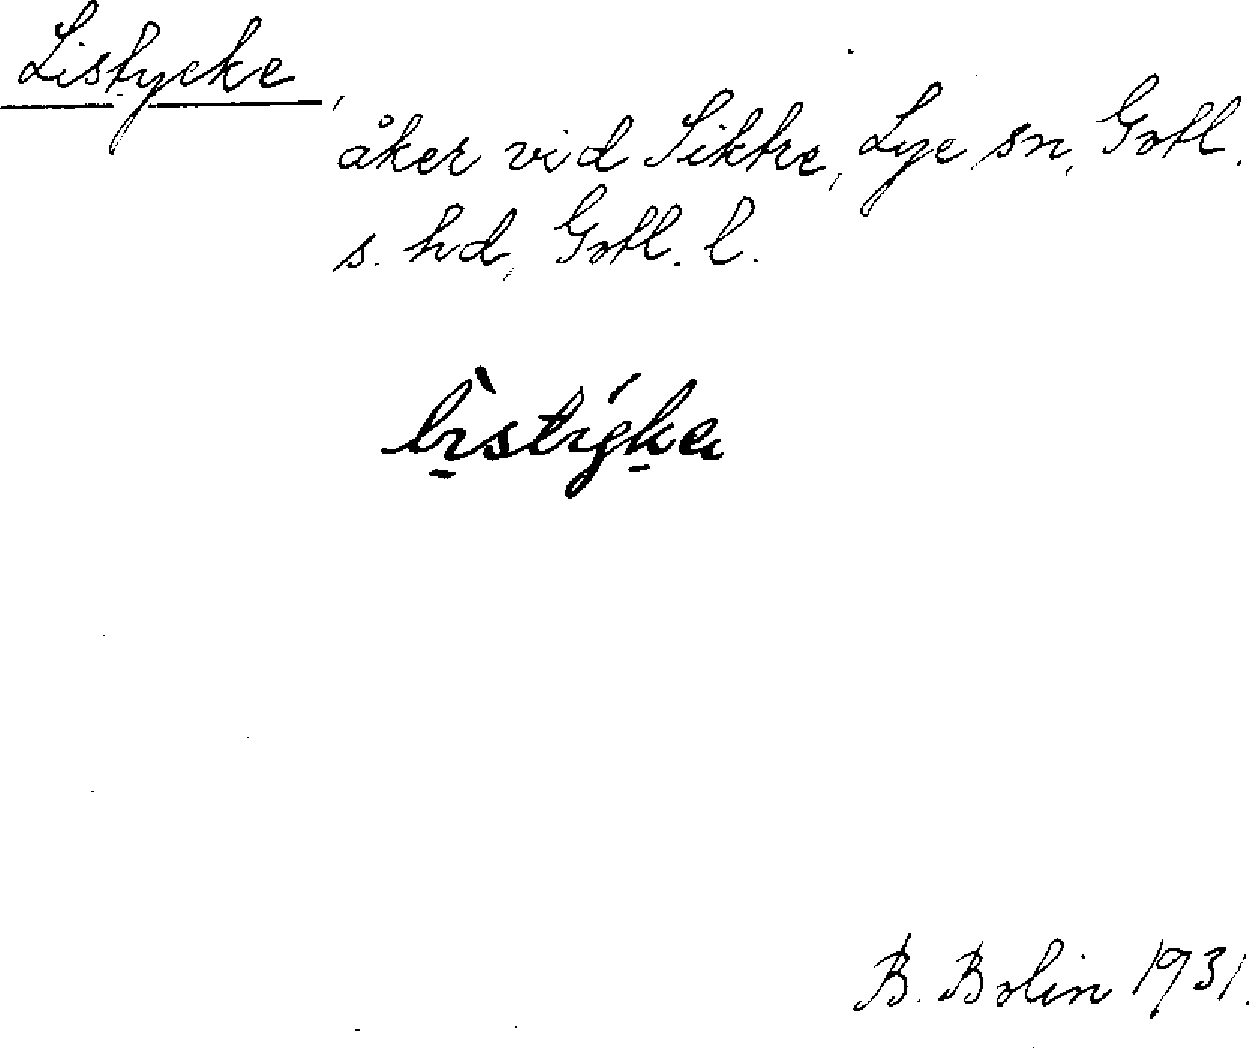 Listycke,
åker vid Sikkre, Lye sn, Gotl.
s. hd, Gotl. l.
B. Bolin 1931.